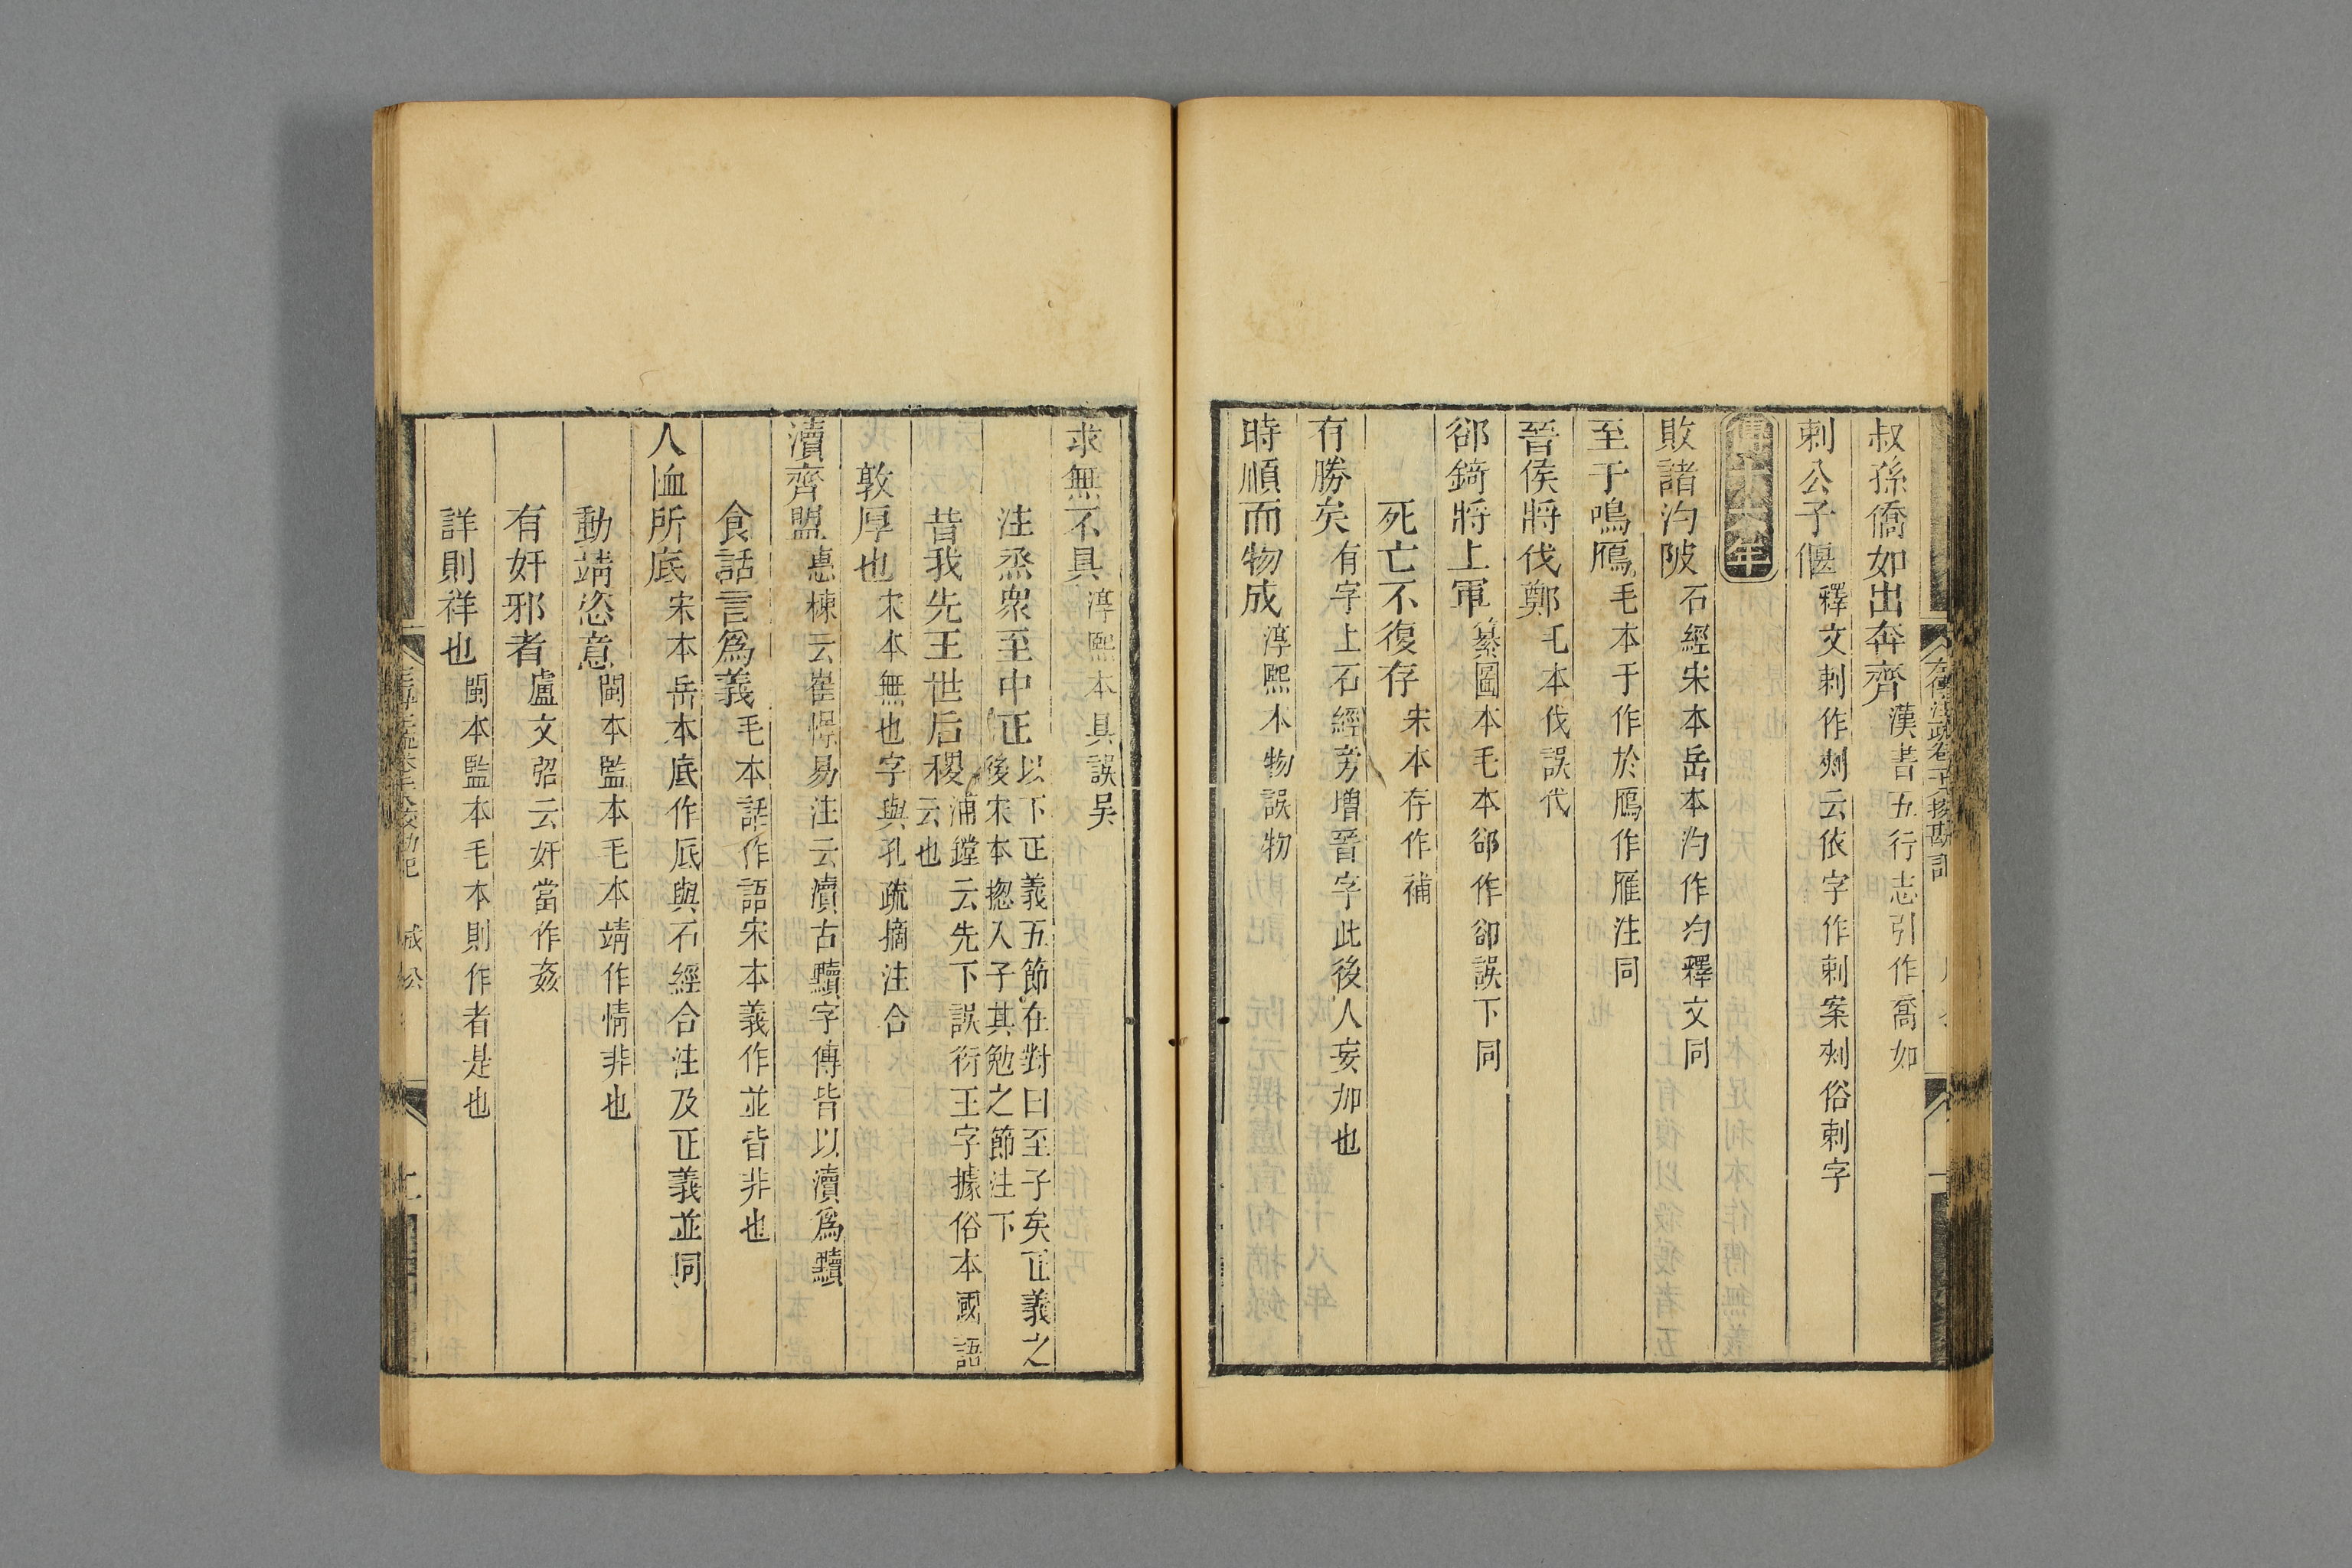 叔孫僑如出奔齊漢書五行志引作喬如
刺公子偃釋文刺作刾云依字作刺案刾俗刺字
傳十六年
敗諸汋陂石經宋本岳本汋作汮釋文同
至于鳴鴈毛本于作於鴈作雁注同
晉侯將伐鄭毛本伐誤代
郤錡將上軍纂圖本毛本郤作卻誤下同
死亡不復存宋本存作補
有勝矣有字上石經旁增晉字此後人妄加也
時順而物成淳熙本物誤物
求無不具淳熙本具誤吴
注烝衆至中正以下正義五節在對曰至子矣正義之
後宋本揔入子其勉之節注下
昔我先王世后稷浦鏜云先下誤衍王字據俗本國語
云也
敦厚也宋本無也字與孔疏摘注合
瀆齊盟惠棟云崔憬易注云瀆古黷字傳皆以瀆爲黷
食話言爲義毛本話作語宋本義作並皆非也
人恤所底宋本岳本底作厎與石經合注及正義並同
動靖恣意閩本監本毛本靖作情非也
有奸邪者盧文弨云奸當作姦
詳則祥也閩本監本毛本則作者是也